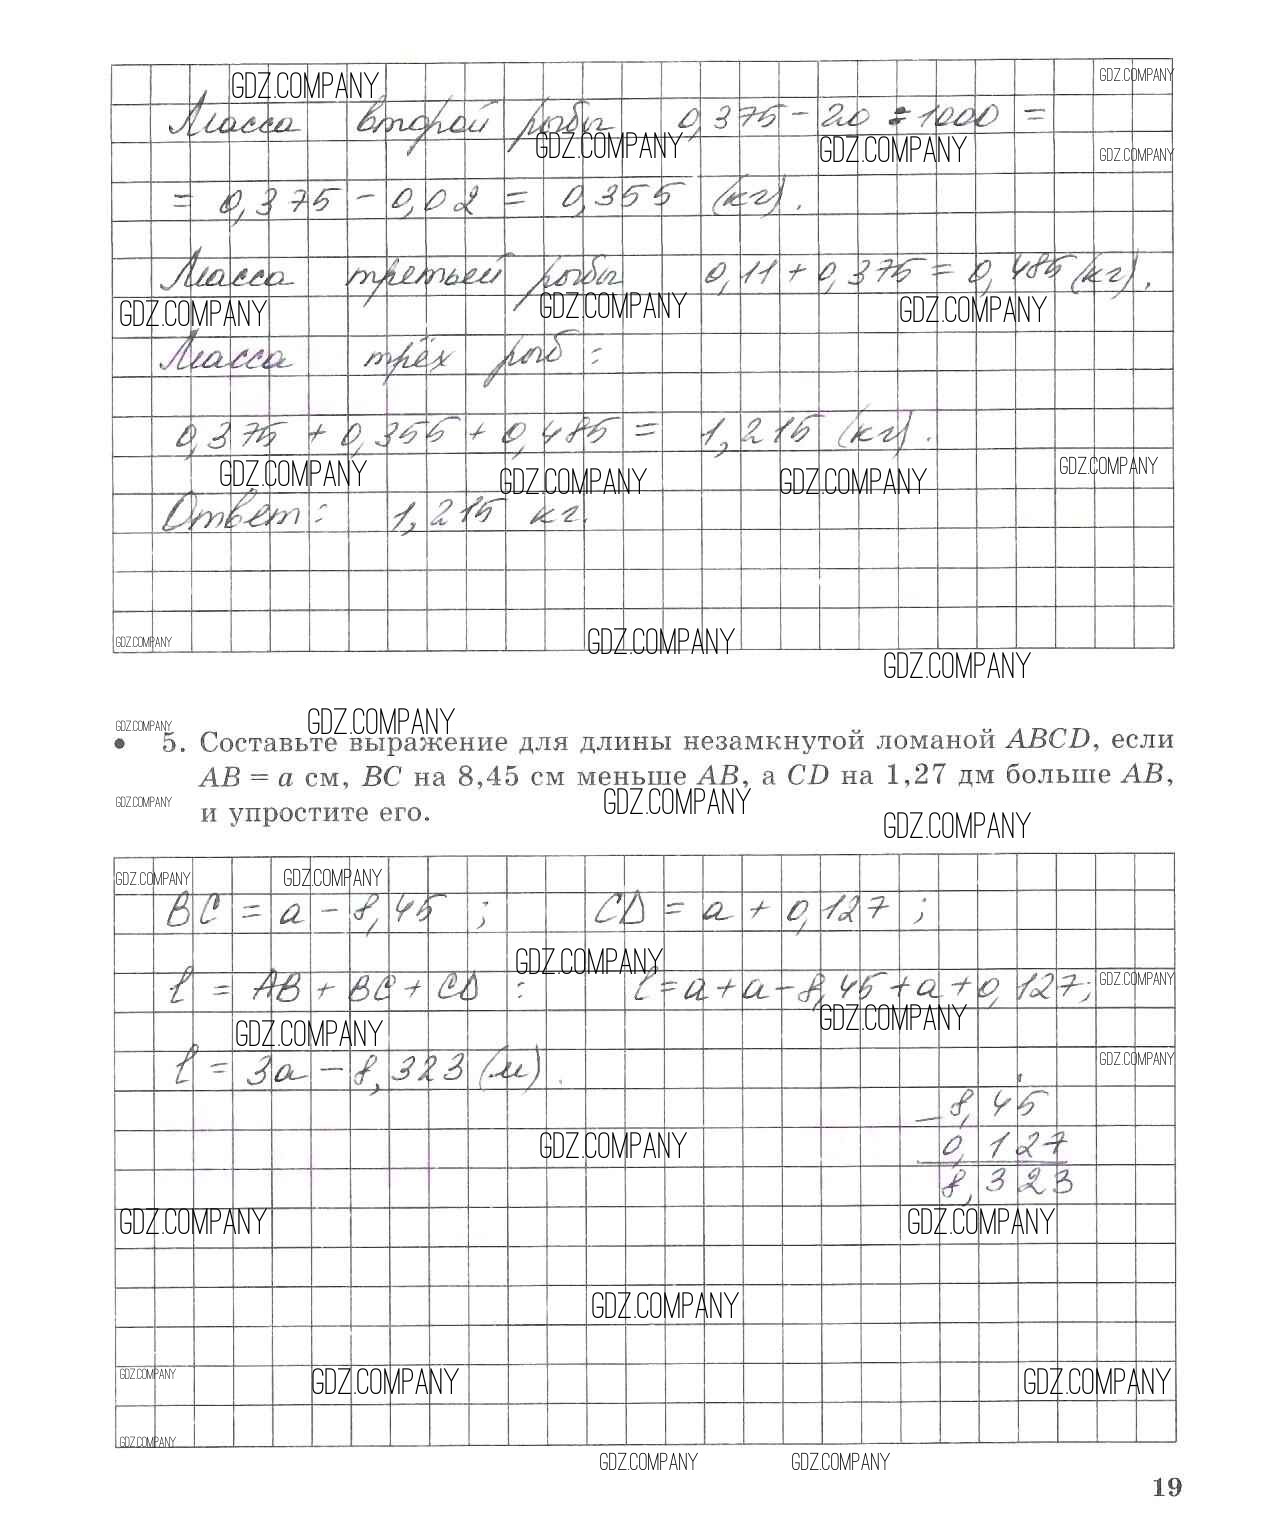 GDZ.COMPANY
GDZ.COMPANY
Масса второй рыбы 0,375 - 20 : 1000 =
GDZ.COMPANY GDZ.COMPANY GDZ.COMPANY
= 0,375 - 0,02 = 0,355 (кг).
Масса третьей рыбы 0,11 + 0,375 = 0,485 (кг).
GDZ.COMPANY GDZ.COMPANY GDZ.COMPANY
Масса трёх рыб :
0,375 + 0,355 + 0,485 = 1,215 (кг).
GDZ.COMPANY GDZ.COMPANY GDZ.COMPANY GDZ.COMPANY
Ответ: 1,215 кг.
GDZ.COMPANY GDZ.COMPANY
GDZ.COMPANY
GDZ.COMPANY GDZ.COMPANY
• 5. Составьте выражение для длины незамкнутой ломаной ABCD, если
AB = a см, BC на 8,45 см меньше AB, а CD на 1,27 дм больше AB,
GDZ.COMPANY GDZ.COMPANY
и упростите его.
GDZ.COMPANY
GDZ.COMPANY GDZ.COMPANY
BC = a - 8,45 ; CD = a + 0,127 ;
GDZ.COMPANY
l = AB + BC + CD : l = a + a - 8,45 + a + 0,127;
GDZ.COMPANY
GDZ.COMPANY GDZ.COMPANY
l = 3a - 8,323 (м).
GDZ.COMPANY
- 8,45
0,127
GDZ.COMPANY
8,323
GDZ.COMPANY GDZ.COMPANY
GDZ.COMPANY
GDZ.COMPANY GDZ.COMPANY GDZ.COMPANY
GDZ.COMPANY
GDZ.COMPANY GDZ.COMPANY
19